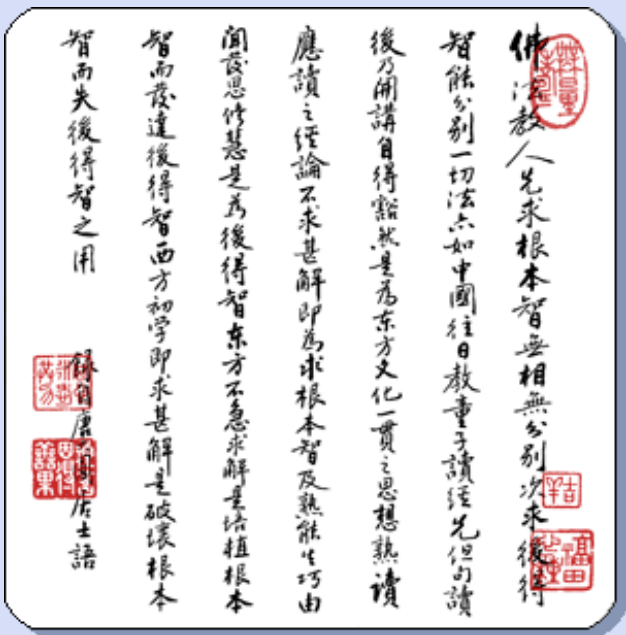 佛法教人先求根本智無相無分別次求後得
智能分別一切法亦如中國往日教童子讀經先但句讀
後乃開講自得豁然是為东方文化一貫之思想熟讀
應讀之經論不求甚解即為求根本智及熟能生巧由
聞發思修慧是為後得智东方不急求解是培植根本
智而發達後得智西方初学即求甚解是破壞根本
智而失後得智之用
錄自唐居士語
吉羊